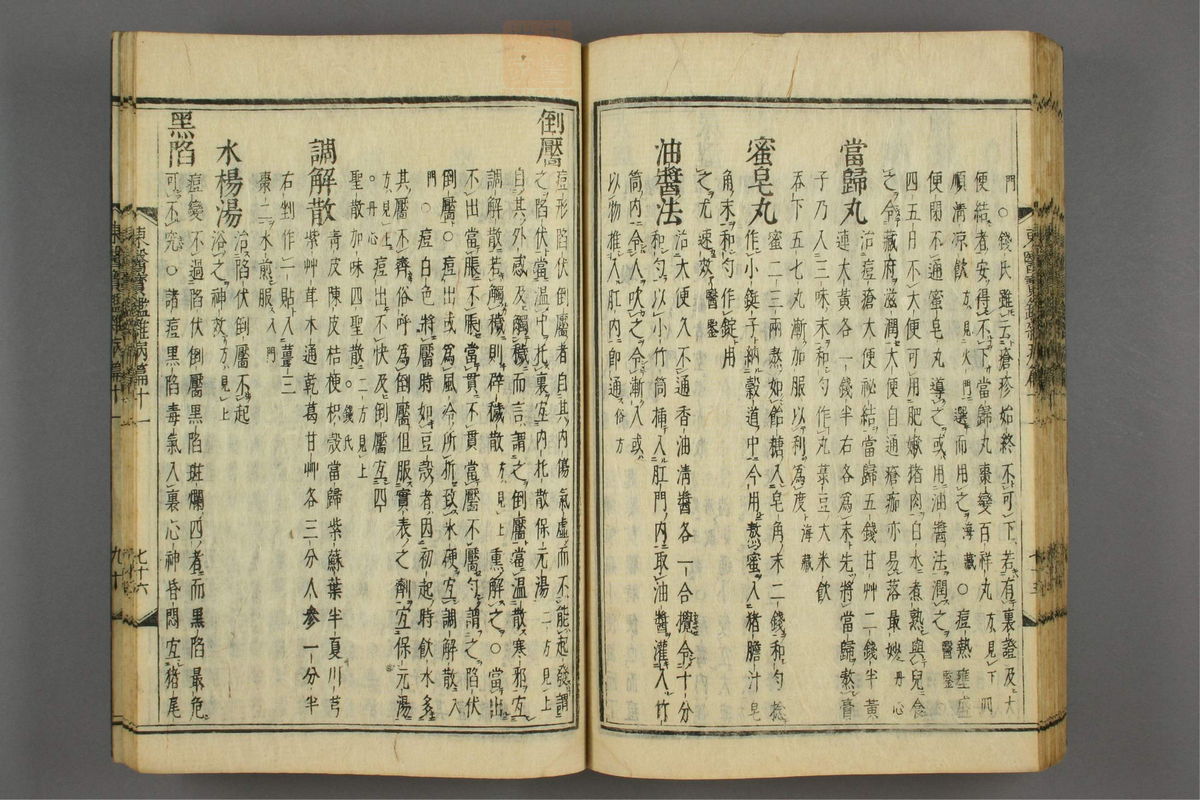 門○錢氏雖云瘡疹始終不可下若有裏證及大
便結者安得不下當歸丸棗變百祥丸方見下四
順淸凉飮方見火門選而用之海藏○痘熱壅盛
便閉不通蜜皂丸導之或用油醬法潤之醫鑒
四五日不大便可用肥嫩猪肉白水煮熟與兒食
之令藏府滋潤大便自通瘡痂亦易落最妙丹心
當歸丸 治痘瘡大便祕結當歸五錢甘艸二錢半黃
連大黃各一錢半右各爲末先將當歸熬膏
子乃入三味末和勻作丸菉豆大米飮
呑下五七丸漸加服以利爲度海藏
蜜皂丸 蜜二三兩熬如飴糖入皂角末二錢和勻捻
作小錠子納穀道中今用熬蜜入猪膽汁皂
角末和勻作錠用
之尤速效醫鑒
油醬法 治大便久不通香油淸醬各一合攪令十分
和勻以小竹筒揷入肛門內取油醬灌入竹
筒內令人吹之令漸入或
以物推入肛內卽通俗方
倒靨 痘形陷伏倒靨者自其內傷氣虛而不能起發謂
之陷伏當溫中托裏宜內托散保元湯二方見上
自其外感及觸穢而言謂之倒靨當溫散寒邪宜
調解散若觸穢則辟穢散方見上熏解之○當出
不出當脹不脹當貫不貫當靨不靨勻謂之陷伏
倒靨○痘出或爲風冷所折致氷硬宜調解散入
門○痘白色將靨時如豆殼者因初起時飮水多
其靨不齊俗呼爲倒靨但服實表之劑宜保元湯
方見上丹心○痘出不快及倒靨宜四
聖散加味四聖散二方見上錢氏
調解散 靑皮陳皮桔梗枳殼當歸紫蘇葉半夏川芎
紫艸茸木通乾葛甘艸各三分人參一分半
右剉作一貼入薑三
棗二水煎服入門
水楊湯 治陷伏倒靨不起
浴之神效方見上
黑陷 痘變不過陷伏倒靨黑陷斑爛四者而黑陷最危
可不究○諸痘黑陷毒氣入裏心神昏悶宜猪尾
東醫寶鑑雜病篇十一
七十六
九十